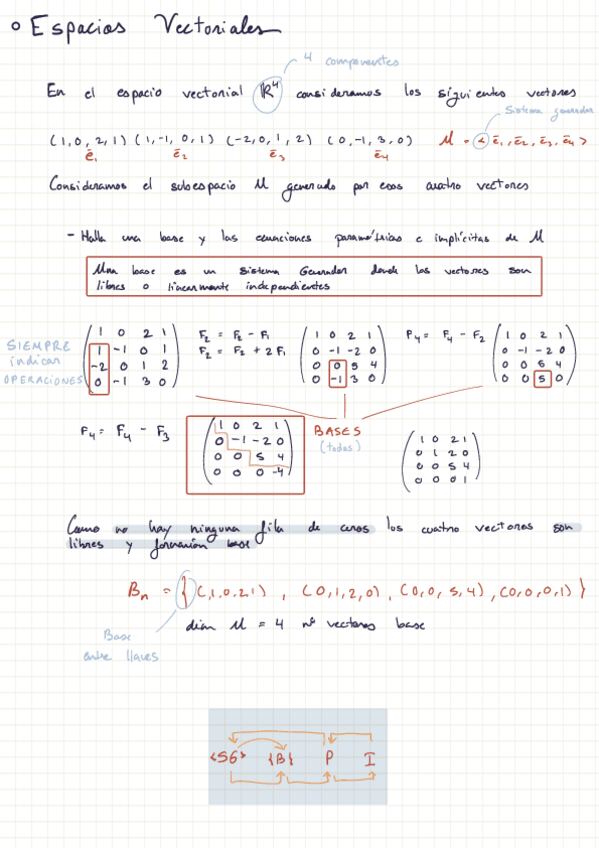 o Espacios Vectoriales
4 componentes
En el espacio vectorial ℝ⁴ consideramos los siguientes vectores
Sistema generador
(1,0,2,1) (1,-1,0,1) (-2,0,1,2) (0,-1,3,0) M = <ē₁,ē₂,ē₃,ē₄>
ē₁ ē₂ ē₃ ē₄
Consideramos el subespacio M generado por esos cuatro vectores
- Halla una base y las ecuaciones paramétricas e implícitas de M
Una base es un Sistema Generador donde los vectores son
libres o linearmente independientes
SIEMPRE
indicar
OPERACIONES
1 0 2 1
1 -1 0 1
-2 0 1 2
0 -1 3 0
F₂ = F₂ - F₁
F₂ = F₂ + 2F₁
1 0 2 1
0 -1 -2 0
0 0 5 4
0 -1 3 0
F₄ = F₄ - F₂
1 0 2 1
0 -1 -2 0
0 0 5 4
0 0 5 0
F₄ = F₄ - F₃
1 0 2 1
0 -1 -2 0
0 0 5 4
0 0 0 -4
BASES
(todas)
1 0 2 1
0 1 2 0
0 0 5 4
0 0 0 1
Como no hay ninguna fila de ceros los cuatro vectores son
libres y formarían base
Bₙ = {(1,0,2,1), (0,1,2,0), (0,0,5,4), (0,0,0,1)}
dim M = 4 nº vectores base
Base
entre llaves
<SG> {B} P I